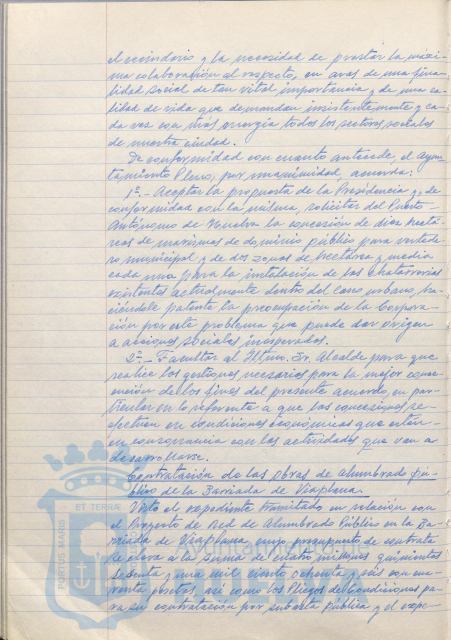 el vecindario y la necesidad de prestar la máxi-
ma colaboración al respecto, en aras de una fina-
lidad social de tan vital importancia y de una ca-
lidad de vida que demandan insistentemente y ca-
da vez con más energía todos los sectores sociales
de nuestra ciudad.
De conformidad con cuanto antecede, el Ayun-
tamiento Pleno, por unanimidad, acuerda:
1º.- Aceptar la propuesta de la Presidencia y, de
conformidad con la misma, solicitar del Puerto
Autónomo de Huelva la concesión de diez hectá-
reas de marismas de dominio público para vertede-
ro municipal y de dos zonas de hectárea y media
cada una para la instalación de las chatarrerías
existentes actualmente dentro del casco urbano, ha-
ciéndole patente la preocupación de la Corpora-
ción por este problema que puede dar origen
a acciones sociales inesperadas.
2º.- Facultar al Iltmo. Sr. Alcalde para que
realice las gestiones necesarias para la mejor conse-
cución de los fines del presente acuerdo, en par-
ticular en lo referente a que las concesiones se
efectúen en condiciones económicas que estén
en consonancia con las actividades que van a
desarrollarse.
Contratación de las Obras de Alumbrado Pú-
blico de la Barriada de Viaplana.
Visto el expediente tramitado en relación con
el Proyecto de Red de Alumbrado Público en la Ba-
rriada de Viaplana, cuyo presupuesto de contrata
se eleva a la suma de cuatro millones quinientas
sesenta y una mil ciento ochenta y seis con cua-
renta pesetas, así como los Pliegos de Condiciones pa-
ra su contratación por subasta pública y el expe-
PORTUS MARIS ET TERRAE
Ayuntamiento